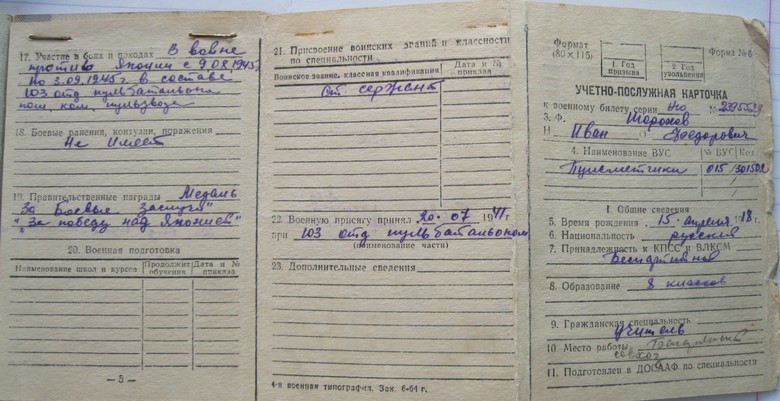 17. Участие в боях и походах В войне
против Японии с 9.08.1945г.
по 3.09.1945 г в составе
103 отд пульбатальона
пом. ком. пульвзвода
18. Боевые ранения, контузии, поражения
Не имеет
19. Правительственные награды Медаль
"За боевые заслуги"
"За победу над Японией"
20. Военная подготовка
Наименование школ и курсов
Продолжит обучения
Дата и № приказа
— 5 —
21. Присвоение воинских званий и классности
по специальности
Воинское звание, классная квалификация
Дата и № приказа
ст сержант
22. Военную присягу принял 20.07 1941г
при 103 отд пульбатальоном
(наименование части)
23. Дополнительные сведения
4-я военная типография. Зак. 6-64 г.
Формат
(80×115)
1. Год призыва
2. Год увольнения
Форм № 6
УЧЕТНО-ПОСЛУЖНАЯ КАРТОЧКА
к военному билету серии НО №
3. Ф.
И Иван О Федорович
4. Наименование ВУС
№ ВУС
Код
Пулеметчики 015
I. Общие сведения
5. Время рождения 15 апреля 1918 г.
6. Национальность русский
7. Принадлежность к КПСС и ВЛКСМ
Беспартийный
8. Образование 8 классов
9. Гражданская специальность
учитель
10 Место работы
совхоз
11. Подготовлен в ДОСААФ по специальности